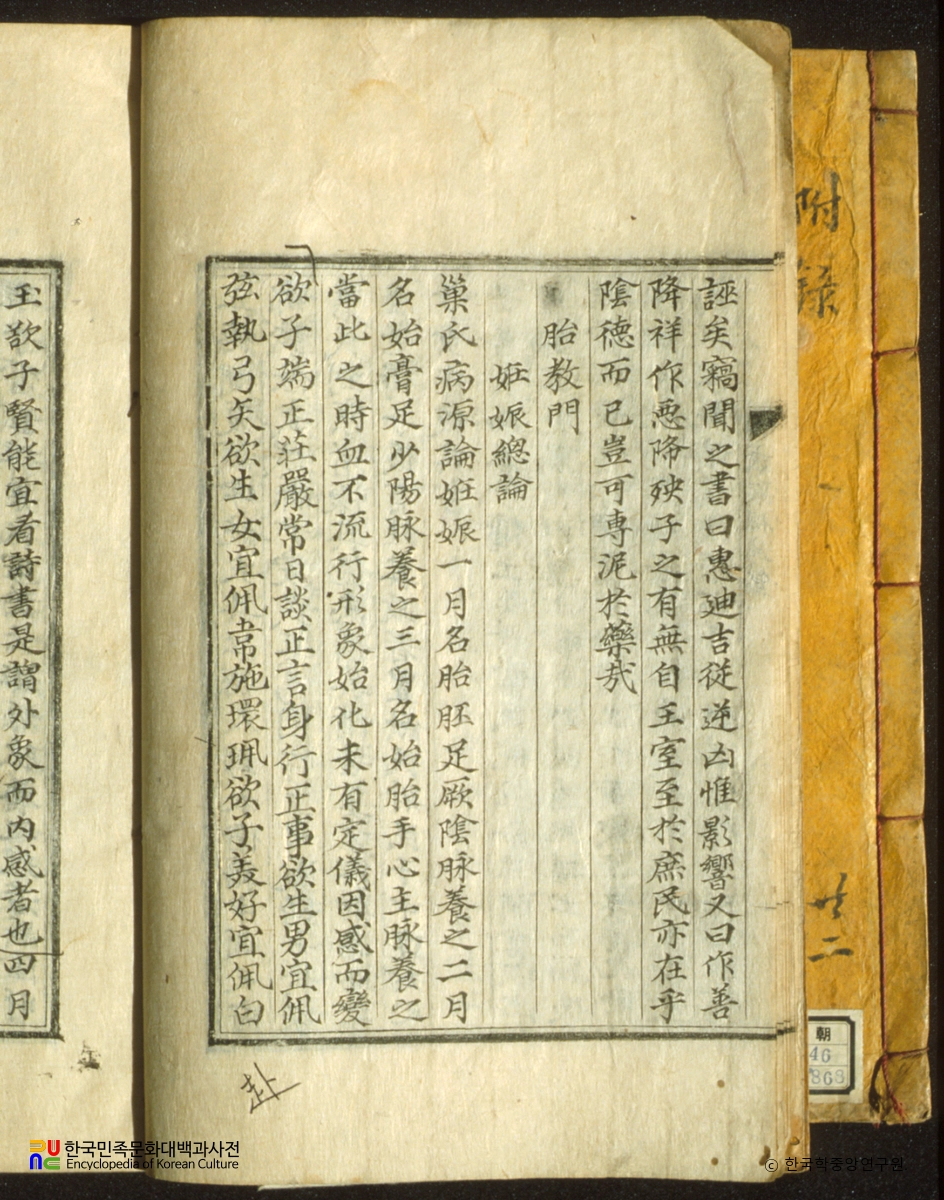 誣矣竊聞之書曰惠廸吉從逆凶惟影響又曰作善
降祥作惡降殃子之有無自王室至於庶民亦在乎
陰德而已豈可專泥於藥㢤
胎教門
姙娠總論
巢氏病源論姙娠一月名胎胚足厥陰脉養之二月
名始膏足少陽脉養之三月名始胎手心主脉養之
當此之時血不流行形象始化未有定儀因感而變
欲子端正莊嚴常日談正言身行正事欲生男宜佩
弦執弓矢欲生女宜佩韋施環珮欲子美好宜佩白
玉欲子賢能宜看詩書是謂外象而内感者也四月
附錄
廿二
朝
46
868
한국민족문화대백과사전
Encyclopedia of Korean Culture
© 한국학중앙연구원